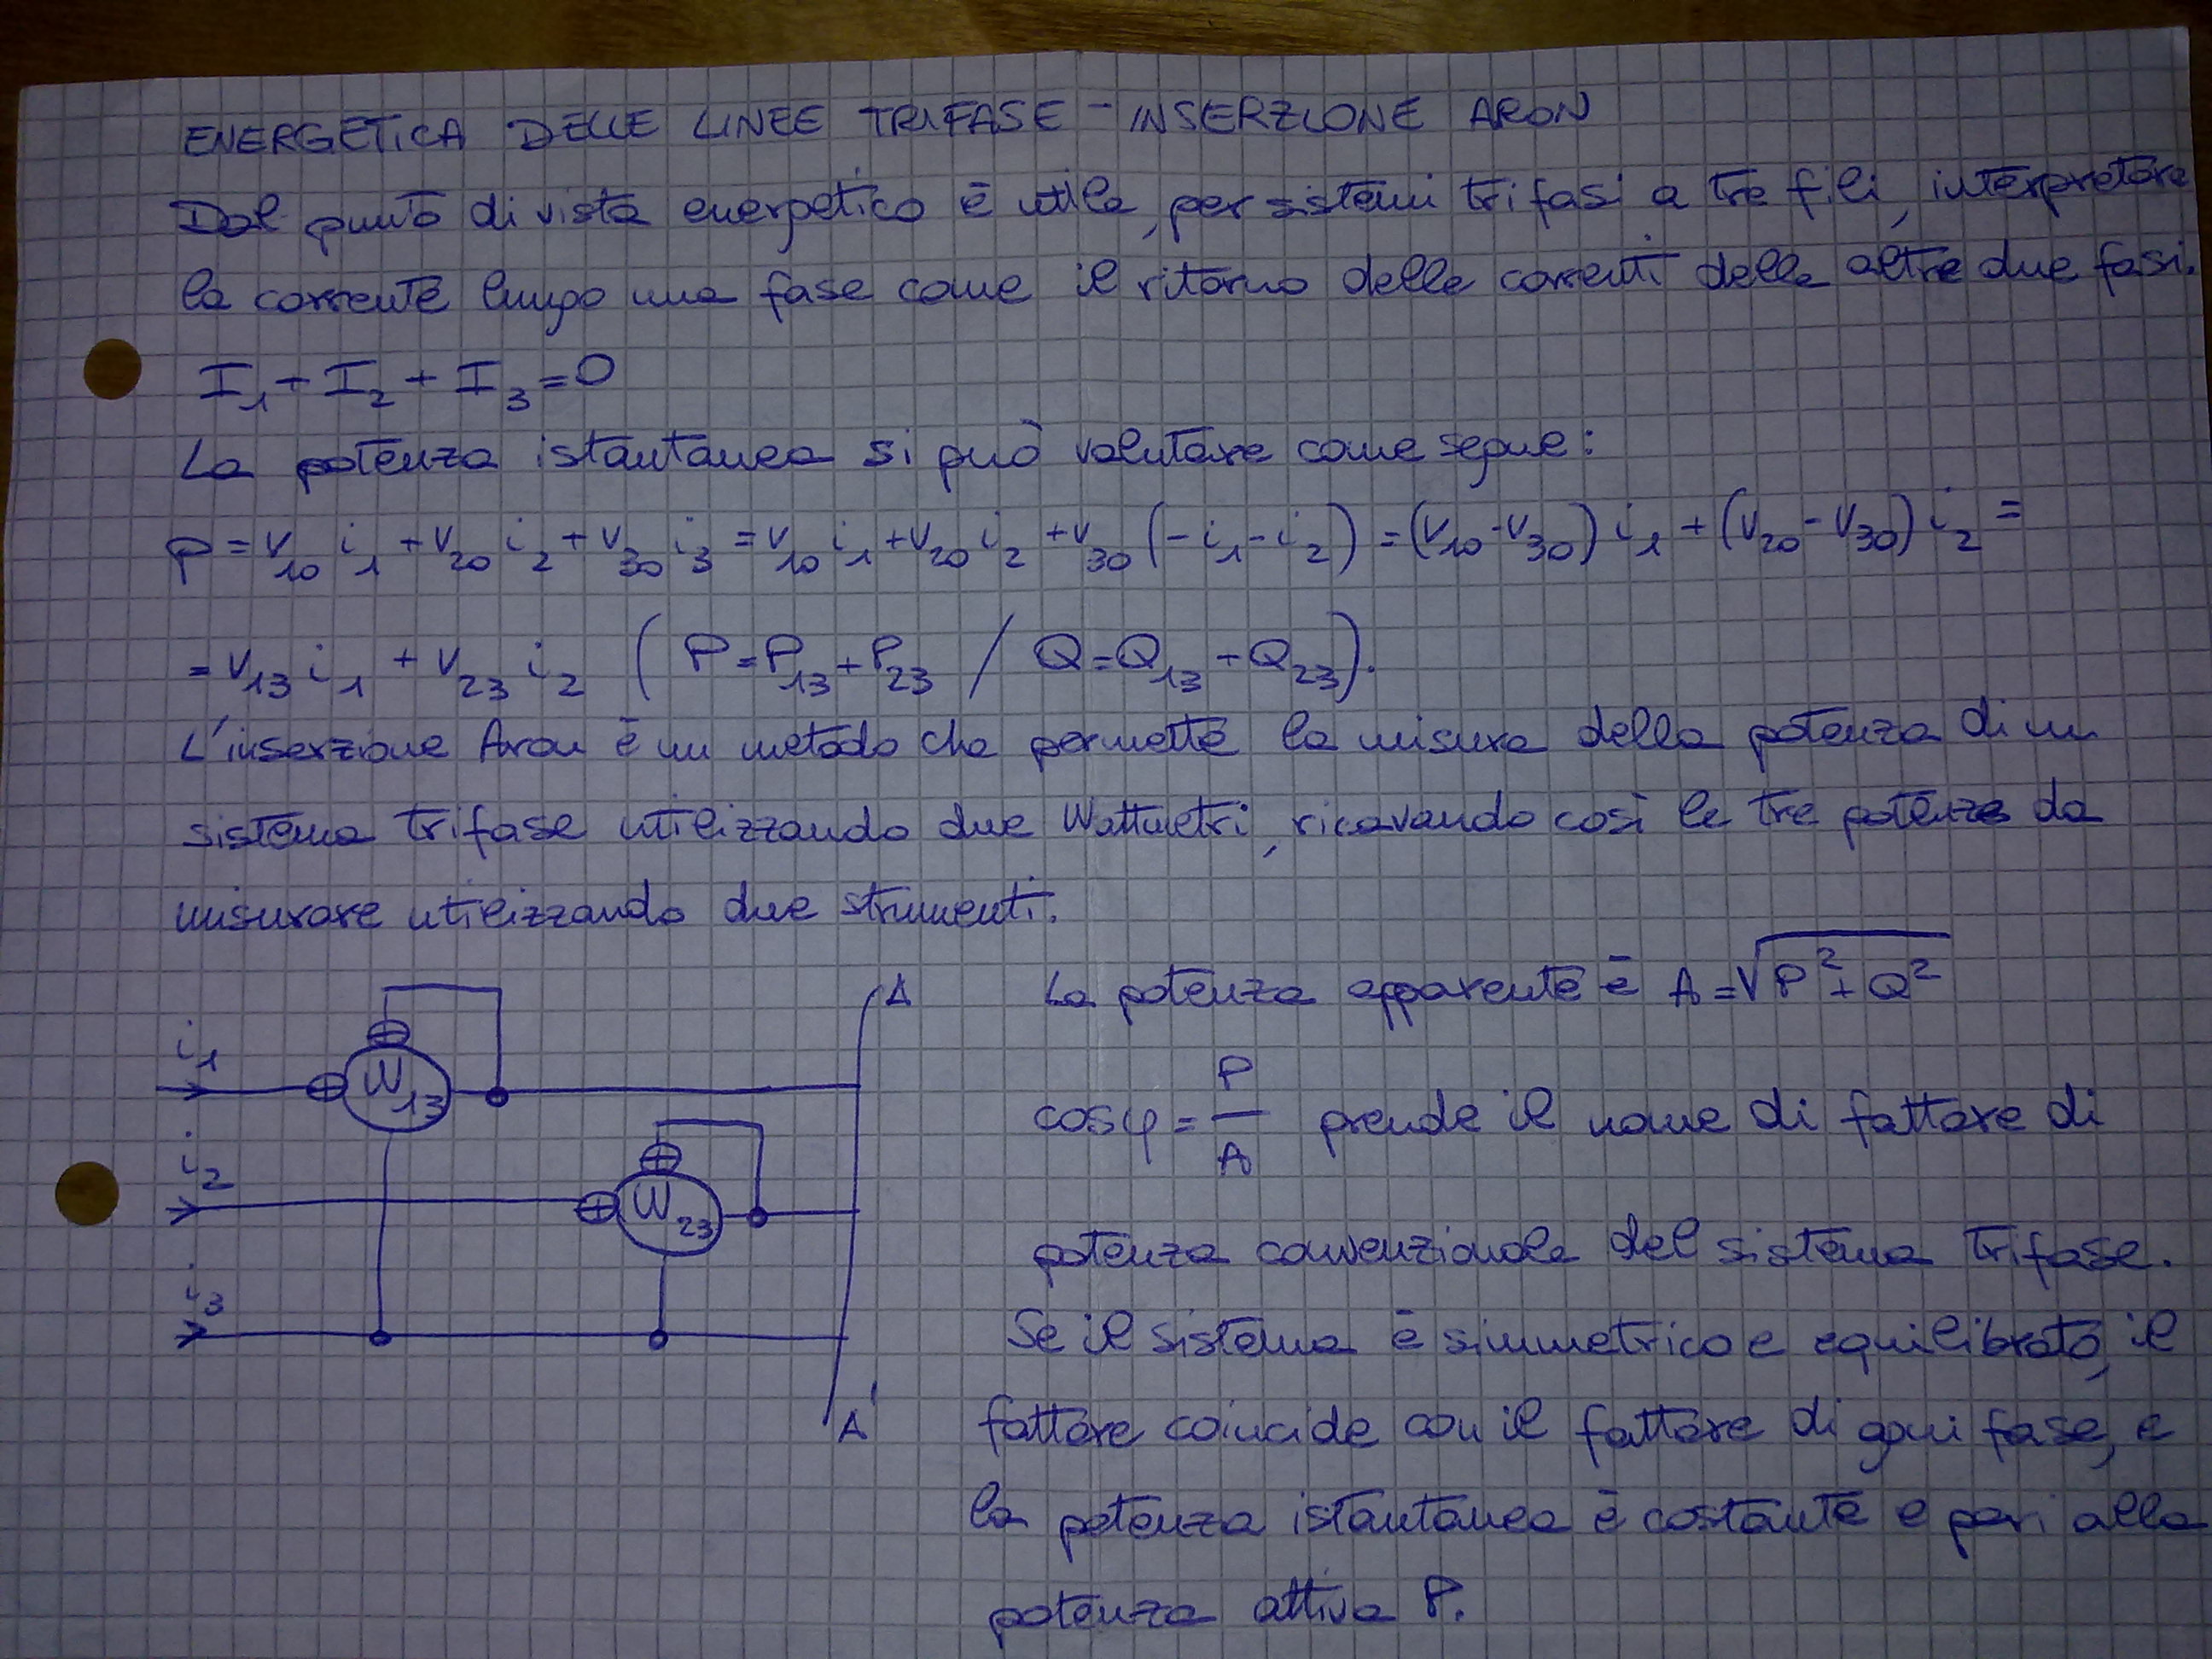 ENERGETICA DELLE LINEE TRIFASE - INSERZIONE ARON
Dal punto di vista energetico è utile, per sistemi trifasi a tre fili, interpretare
la corrente lungo una fase come il ritorno delle correnti delle altre due fasi.
I₁ + I₂ + I₃ = 0
La potenza istantanea si può valutare come segue:
p = v₁₀ i₁ + v₂₀ i₂ + v₃₀ i₃ = v₁₀ i₁ + v₂₀ i₂ + v₃₀ (-i₁-i₂) = (v₁₀-v₃₀) i₁ + (v₂₀-v₃₀) i₂ =
= v₁₃ i₁ + v₂₃ i₂ (P = P₁₃ + P₂₃ / Q = Q₁₃ + Q₂₃).
L'inserzione Aron è un metodo che permette la misura della potenza di un
sistema trifase utilizzando due Wattmetri, ricavando così le tre potenze da
misurare utilizzando due strumenti.
La potenza apparente è A = √(P² + Q²)
cosφ = P/A prende il nome di fattore di
potenza convenzionale del sistema trifase.
Se il sistema è simmetrico e equilibrato, il
fattore coincide con il fattore di ogni fase, e
la potenza istantanea è costante e pari alla
potenza attiva P.
A
i₁
W₁₃
i₂
W₂₃
i₃
A'